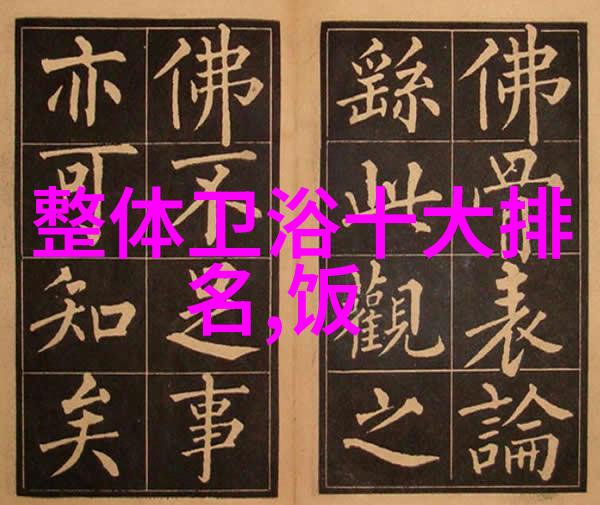 整体卫浴十大排
名,饭
佛骨表論
繇此觀之
佛不足事
亦可知矣